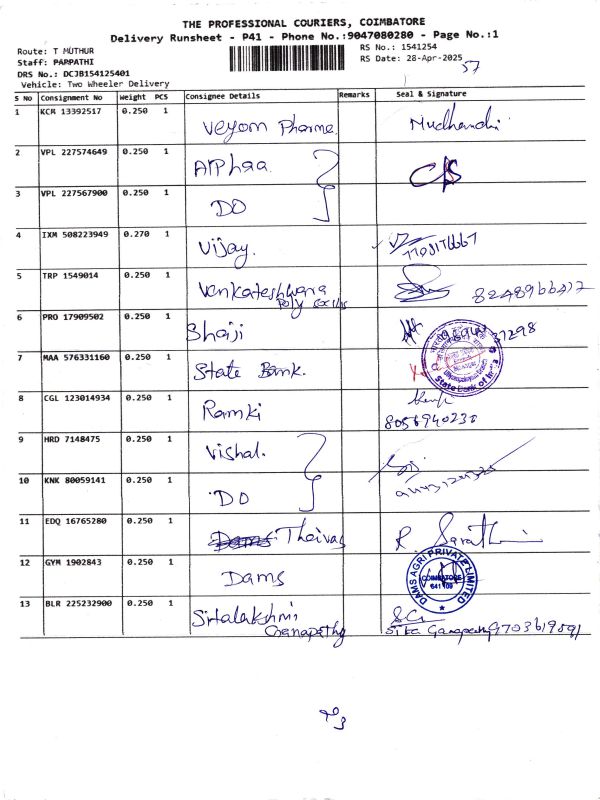 THE PROFESSIONAL COURIERS, COIMBATORE
Delivery Runsheet - P41 - Phone No.:9047080280 - Page No.:1
Route: T MUTHUR
RS No.: 1541254
Staff: PARPATHI
RS Date: 28-Apr-2025
57
DRS No.: DCJB154125401
Vehicle: Two Wheeler Delivery
S No Consignment No Weight PCS Consignee Details Remarks Seal & Signature
1 KCM 13392517 0.250 1 Veyom Pharma Mudhandhi
2 VPL 227574649 0.250 1 Alphaa
3 VPL 227567900 0.250 1 DO
4 IXM 508223949 0.270 1 Vijay.
5 TRP 1549014 0.250 1 Venkateshwara
8248966412
6 PRO 17909502 0.250 1 Shaji
7 MAA 576331160 0.250 1 State Bank.
State Bank of India
8 CGL 123014934 0.250 1 Ramki
8056940238
9 HRD 7148475 0.250 1 Vishal.
10 KNK 80059141 0.250 1 DO
11 EDQ 16765280 0.250 1 Dams Theivas R. Sarathi
12 GYM 1902843 0.250 1 Dams
DAMS AGRI PRIVATE LIMITED
COIMBATORE
13 BLR 225232900 0.250 1 Sitalakshmi
Ganapathy Sita Ganapathy 9703619591